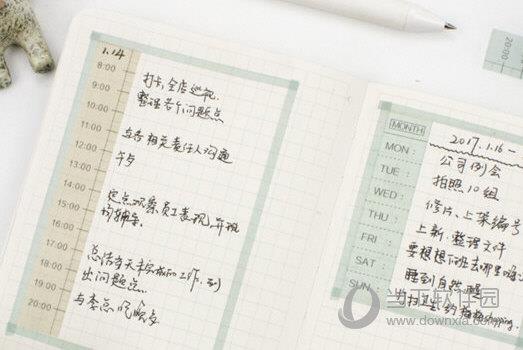 1.14
8:00
9:00
10:00
11:00
12:00
13:00
14:00
15:00
16:00
17:00
18:00
19:00
20:00
打卡,全店巡视
整理若干问题点
与各相关责任人沟通
午与
定点观察员工表现,并现
场辅导.
总结当天未完成的工作,列
出问题点
与李总
20:00
MONTH
2017.1.16-
MON:
公司例会
TUE:
拍照10组
WED:
修片、上架编号
THU:
上新.整理文件
FRI:
要想想下班去哪里吗
SAT:
睡到自然醒
SUN
shopping.
当下软件园
www.downxia.com